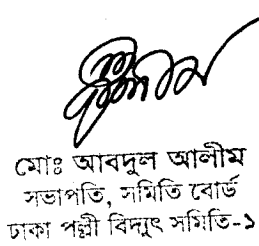 মোঃ আবদুল আলীম
সভাপতি, সমিতি বোর্ড
ঢাকা পল্লী বিদ্যুৎ সমিতি-১